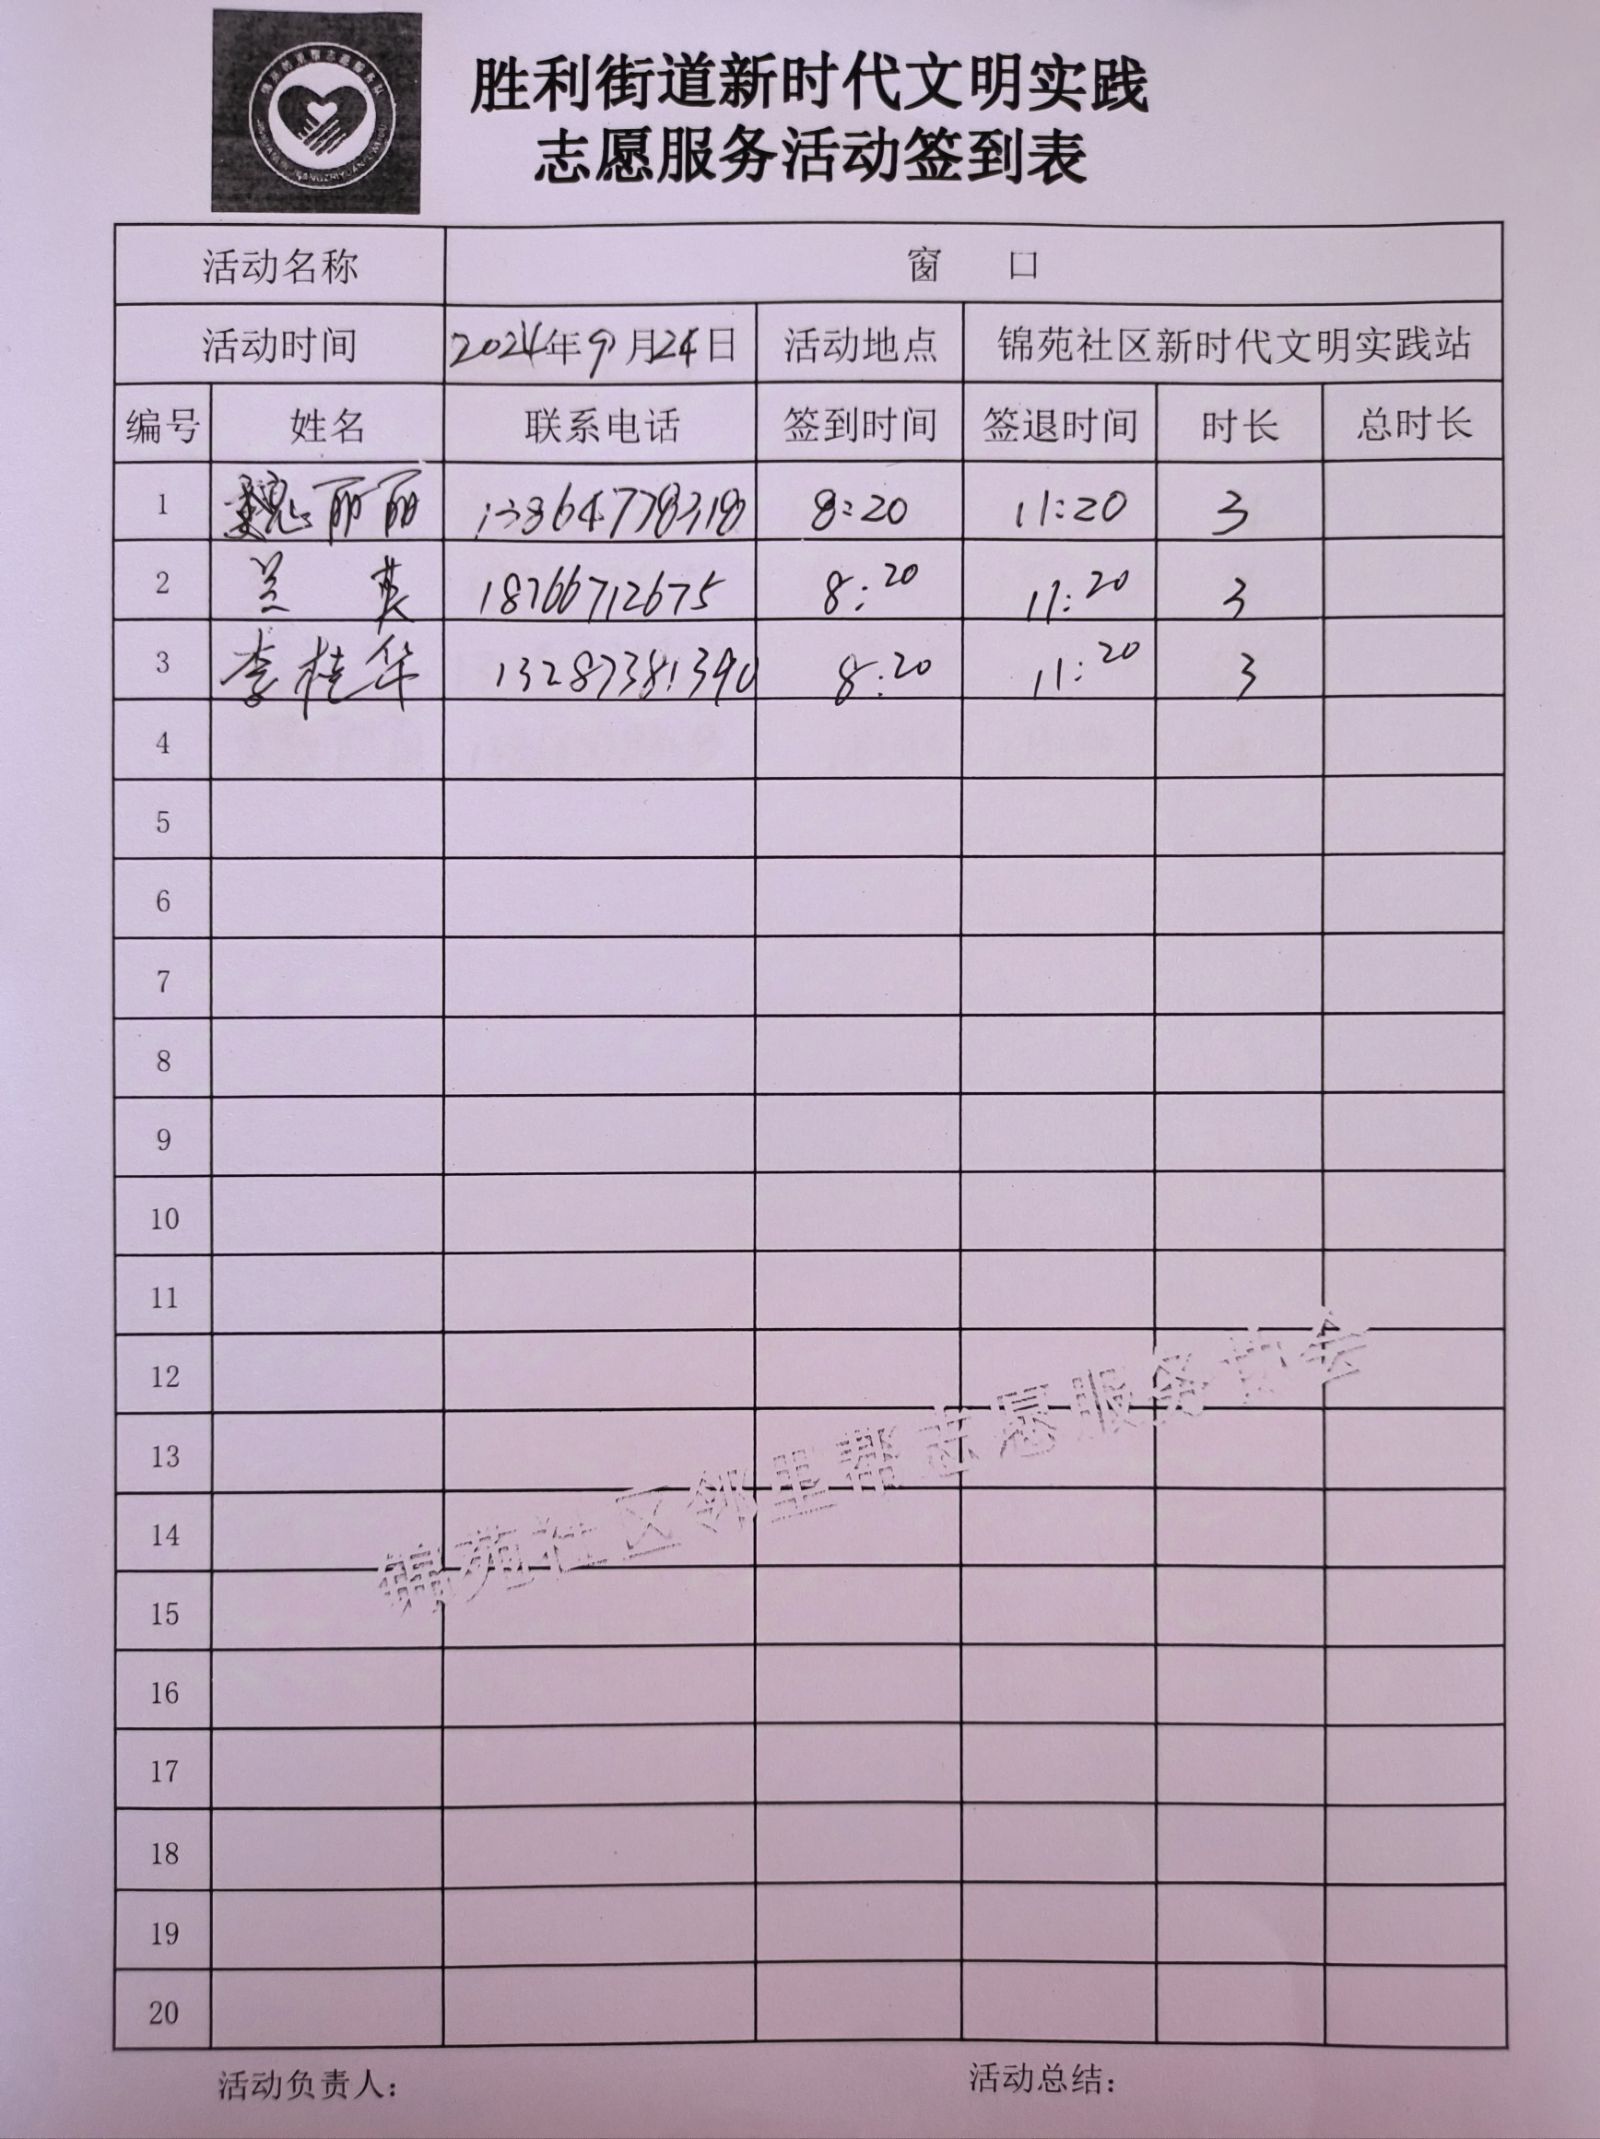 胜利街道新时代文明实践
志愿服务活动签到表
活动名称 窗 口
活动时间 2024年9月24日 活动地点 锦苑社区新时代文明实践站
编号 姓名 联系电话 签到时间 签退时间 时长 总时长
1 魏丽丽 13864778318 8:20 11:20 3
2 兰英 18766712675 8:20 11:20 3
3 李桂华 13287381390 8:20 11:20 3
4
5
6
7
8
9
10
11
12
13
14
15
16
17
18
19
20
锦苑社区邻里帮志愿服务协会
活动负责人： 活动总结：